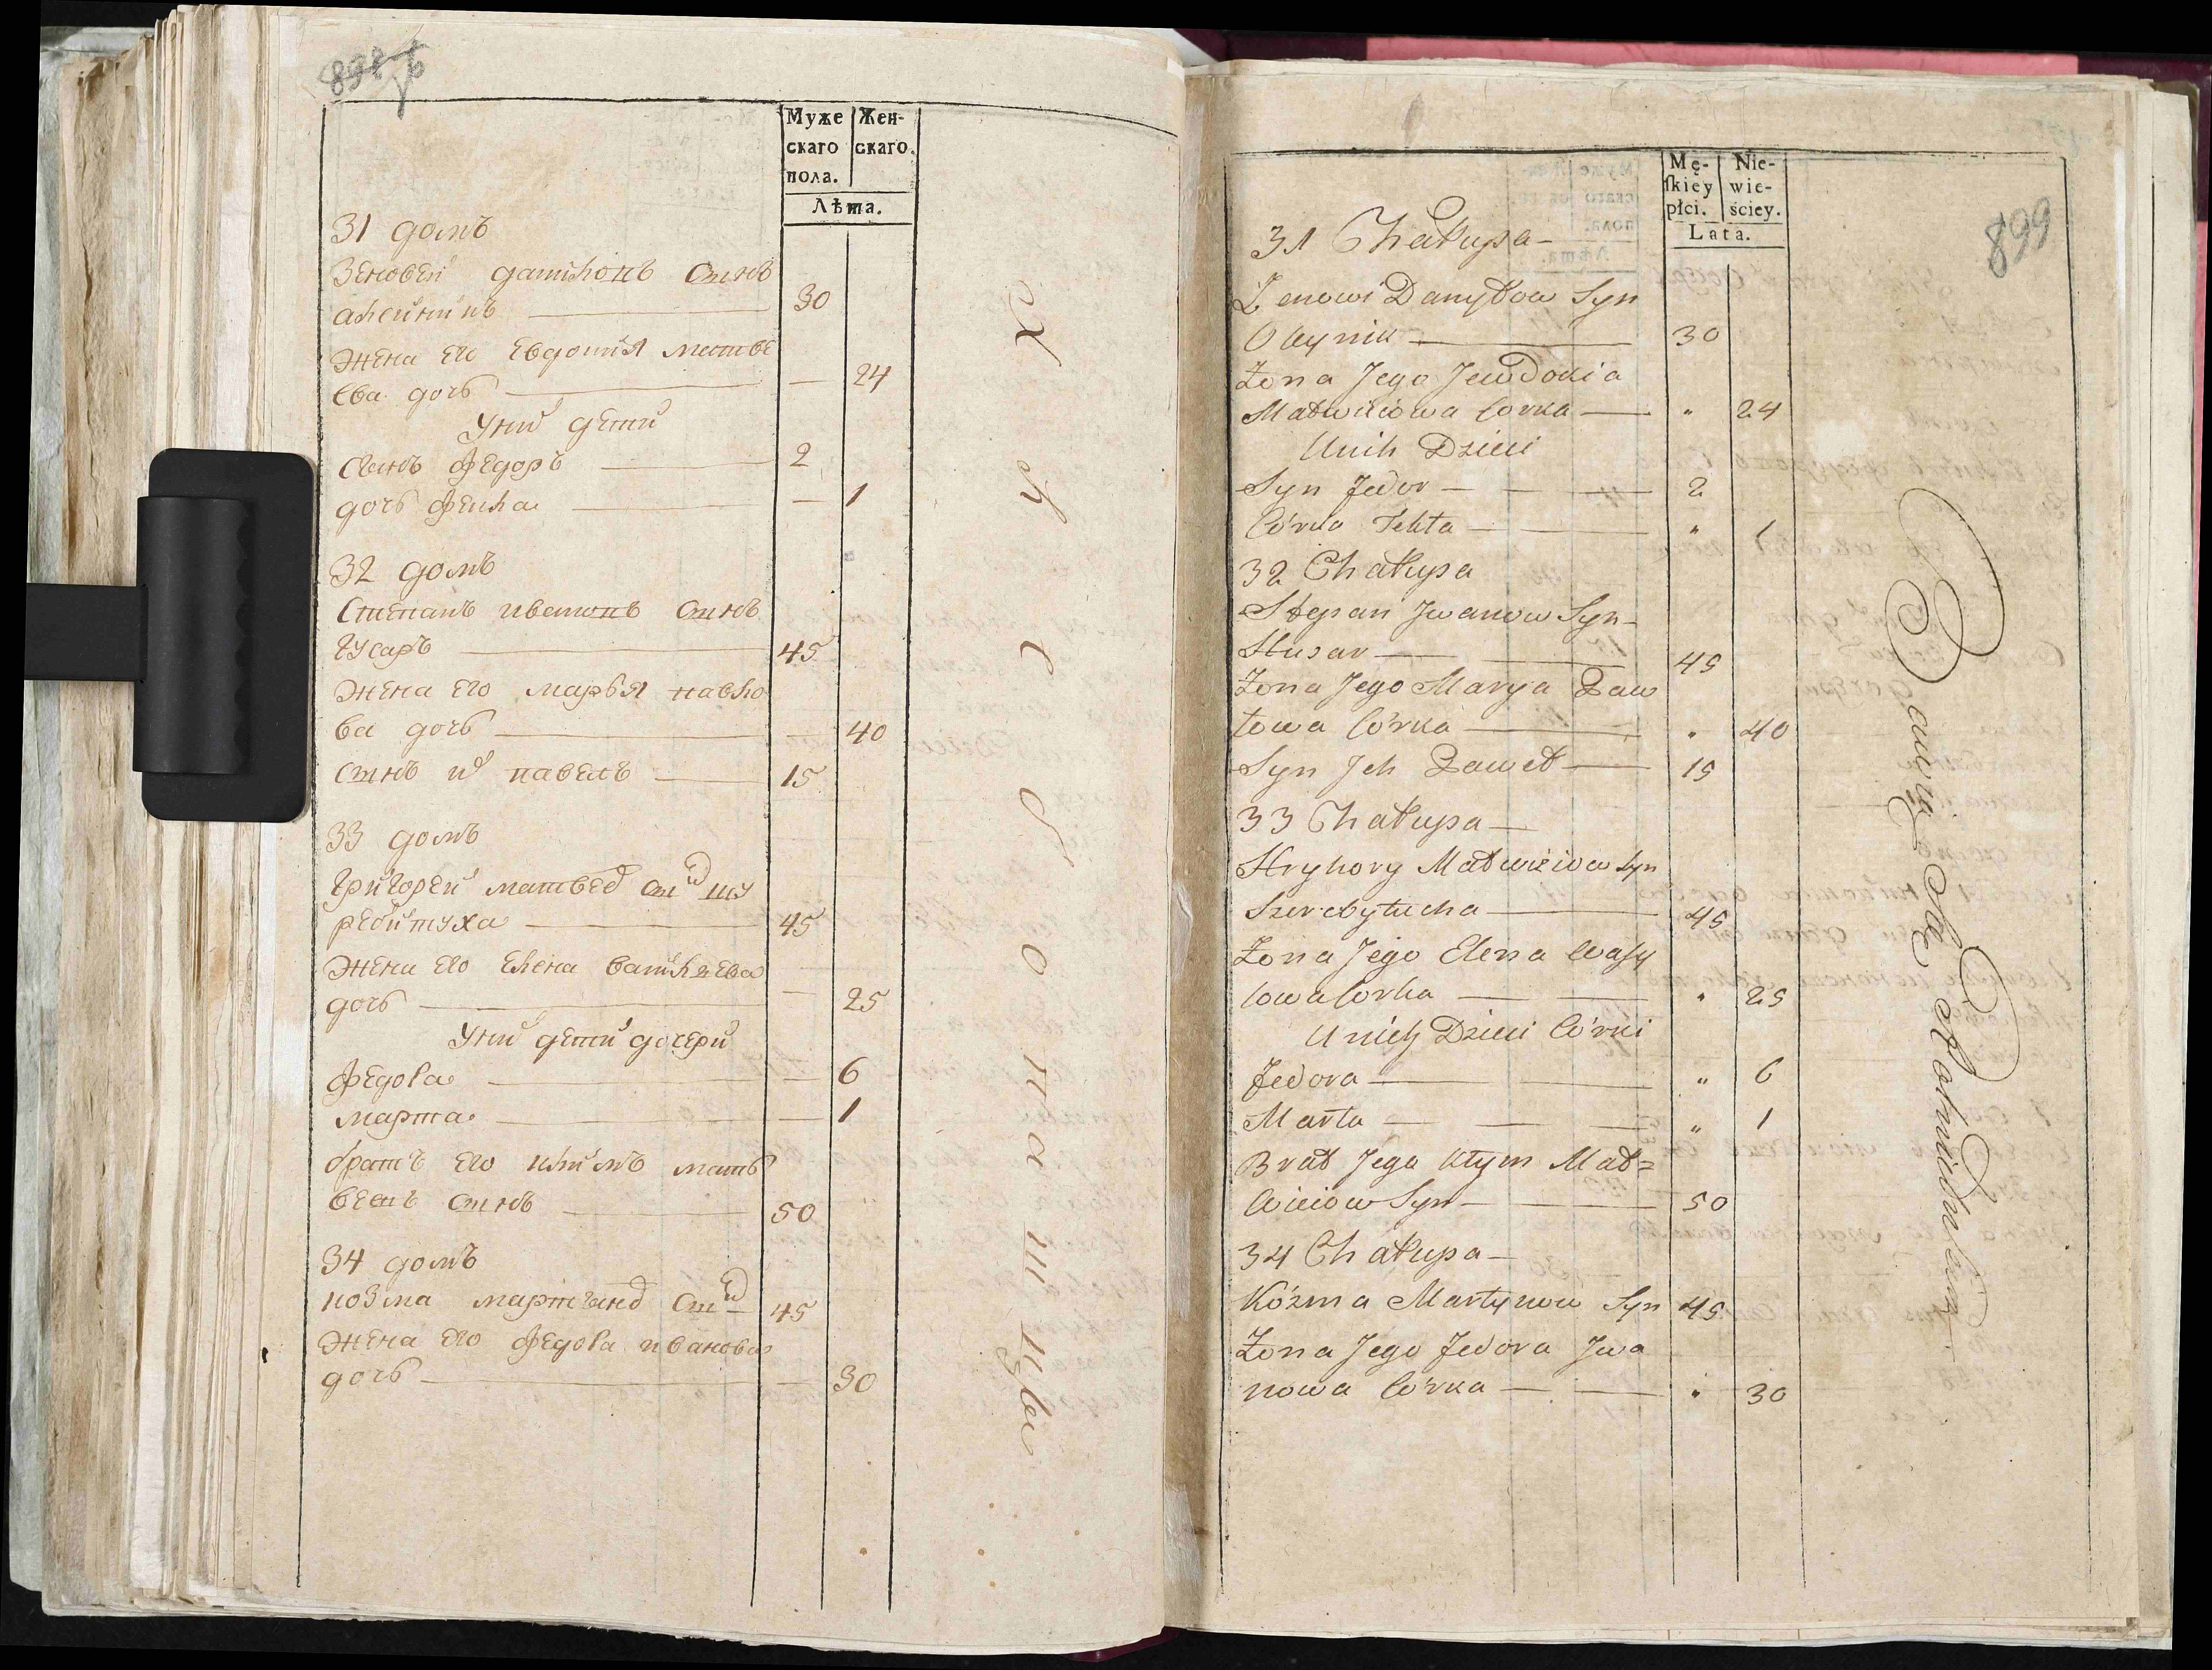 Муже
скаго
пола.
Жен-
скаго.
Лѣта.
31 домъ
Зеновей данилонъ сынъ
алейникъ 30
жена его Евдокия матве
ева дочь — 24
У них дети
сынъ федоръ 2
дочь фекла — 1
32 домъ
Степанъ ивановъ сынъ
гусаръ 45
жена его марья павло
ва дочь — 40
сынъ их павелъ 15
33 домъ
григорей матвеев сын ше
ребитуха 45
жена его Елена василева
дочь — 25
У них дети дочери
федора — 6
марта — 1
братъ его климъ матв
веевъ сынъ 50
34 домъ
козма мартынов сын 45
жена его федора иванова
дочь — 30
899
Mę-
skiey
płci.
Nie-
wie-
ściey.
Lata.
31 Chałupa
Zenowi Danyłow Syn
Oleynik 30
Żona Jego Jewdokia
Matwieiowa Corka " 24
U nih Dzieci
Syn Fedor 2
Córka Fekla " 1
32 Chałupa
Stepan Jwanow Syn
Husar 45
Żona Jego Marya Paw
łowa Córka " 40
Syn Jch Paweł 15
33 Chałupa
Hryhory Matwieiow Syn
Szerebytucha 45
Żona Jego Elena Wasy
lowa Corka " 25
U nich Dzieci Córki
Fedora " 6
Marta " 1
Brat Jego Kłym Mat=
wieiow Syn 50
34 Chałupa
Kózma Martynow Syn 45
Żona Jego Fedora Jwa
nowa Córka " 30